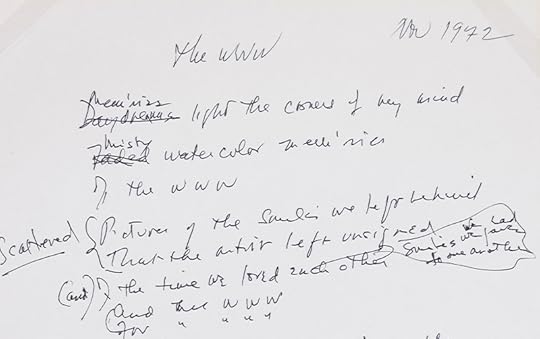 Nov 1972
The WWW
Memories
Daydreams light the corners of my mind
Misty
Faded watercolor memories
Of the WWW
Scattered { Pictures of the smiles we left behind
That the artist left unsigned
Smiles we gave
to one another
(and) Of the time we loved each other
And the WWW
For " " " "